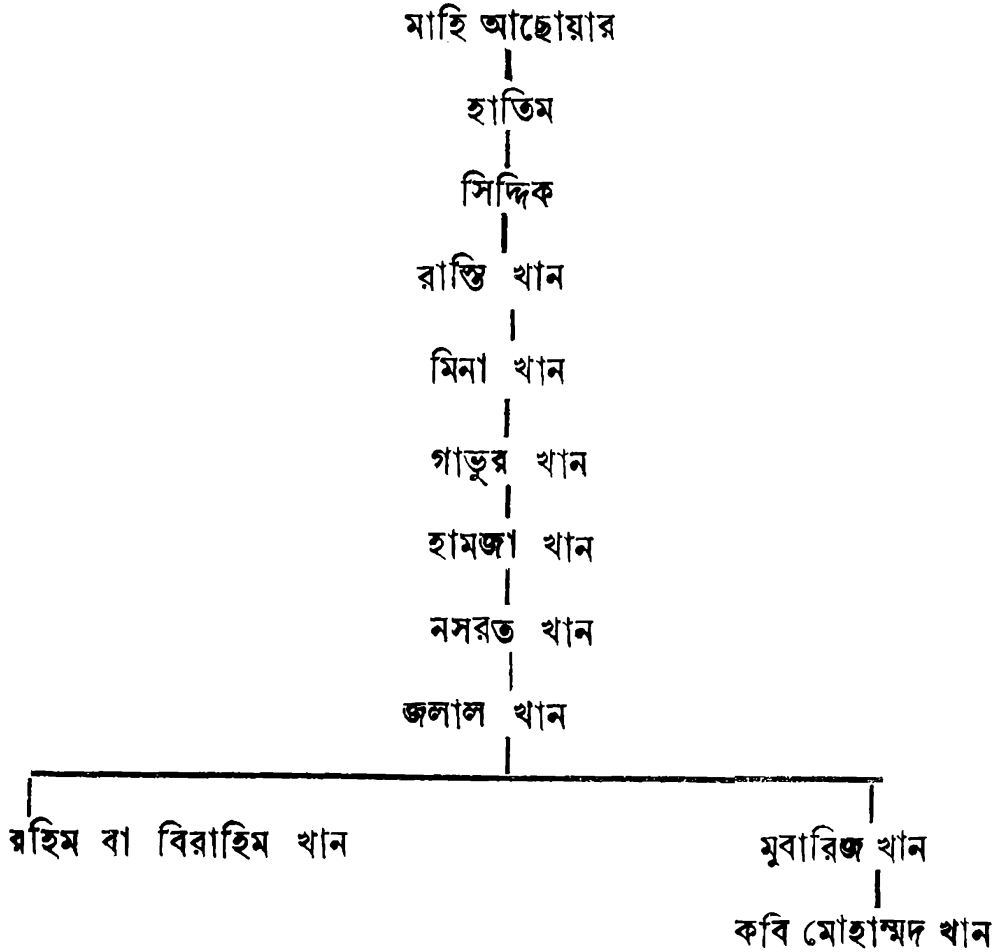 মাহি আছোয়ার
হাতিম
সিদ্দিক
রাস্তি খান
মিনা খান
গাভুর খান
হামজা খান
নসরত খান
জলাল খান
রহিম বা বিরাহিম খান
মুবারিজ খান
কবি মোহাম্মদ খান